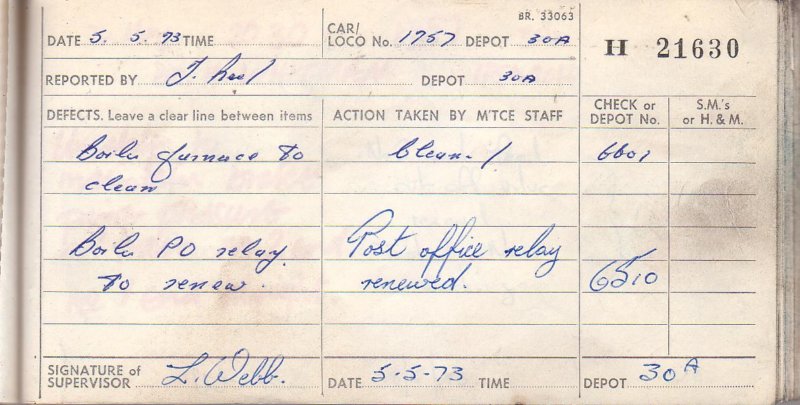 BR. 33063
DATE 5. 5. 73 TIME CAR/ LOCO No. 1757 DEPOT 30A H 21630
REPORTED BY J. DEPOT 30A
DEFECTS. Leave a clear line between items ACTION TAKEN BY M'TCE STAFF CHECK or DEPOT No. S.M.'s or H. & M.
Boiler furnace to Clean 6601
clean
Boiler PO relay Post office relay
to renew. renewed. 6510
SIGNATURE of SUPERVISOR L. Webb. DATE 5-5-73 TIME DEPOT 30A